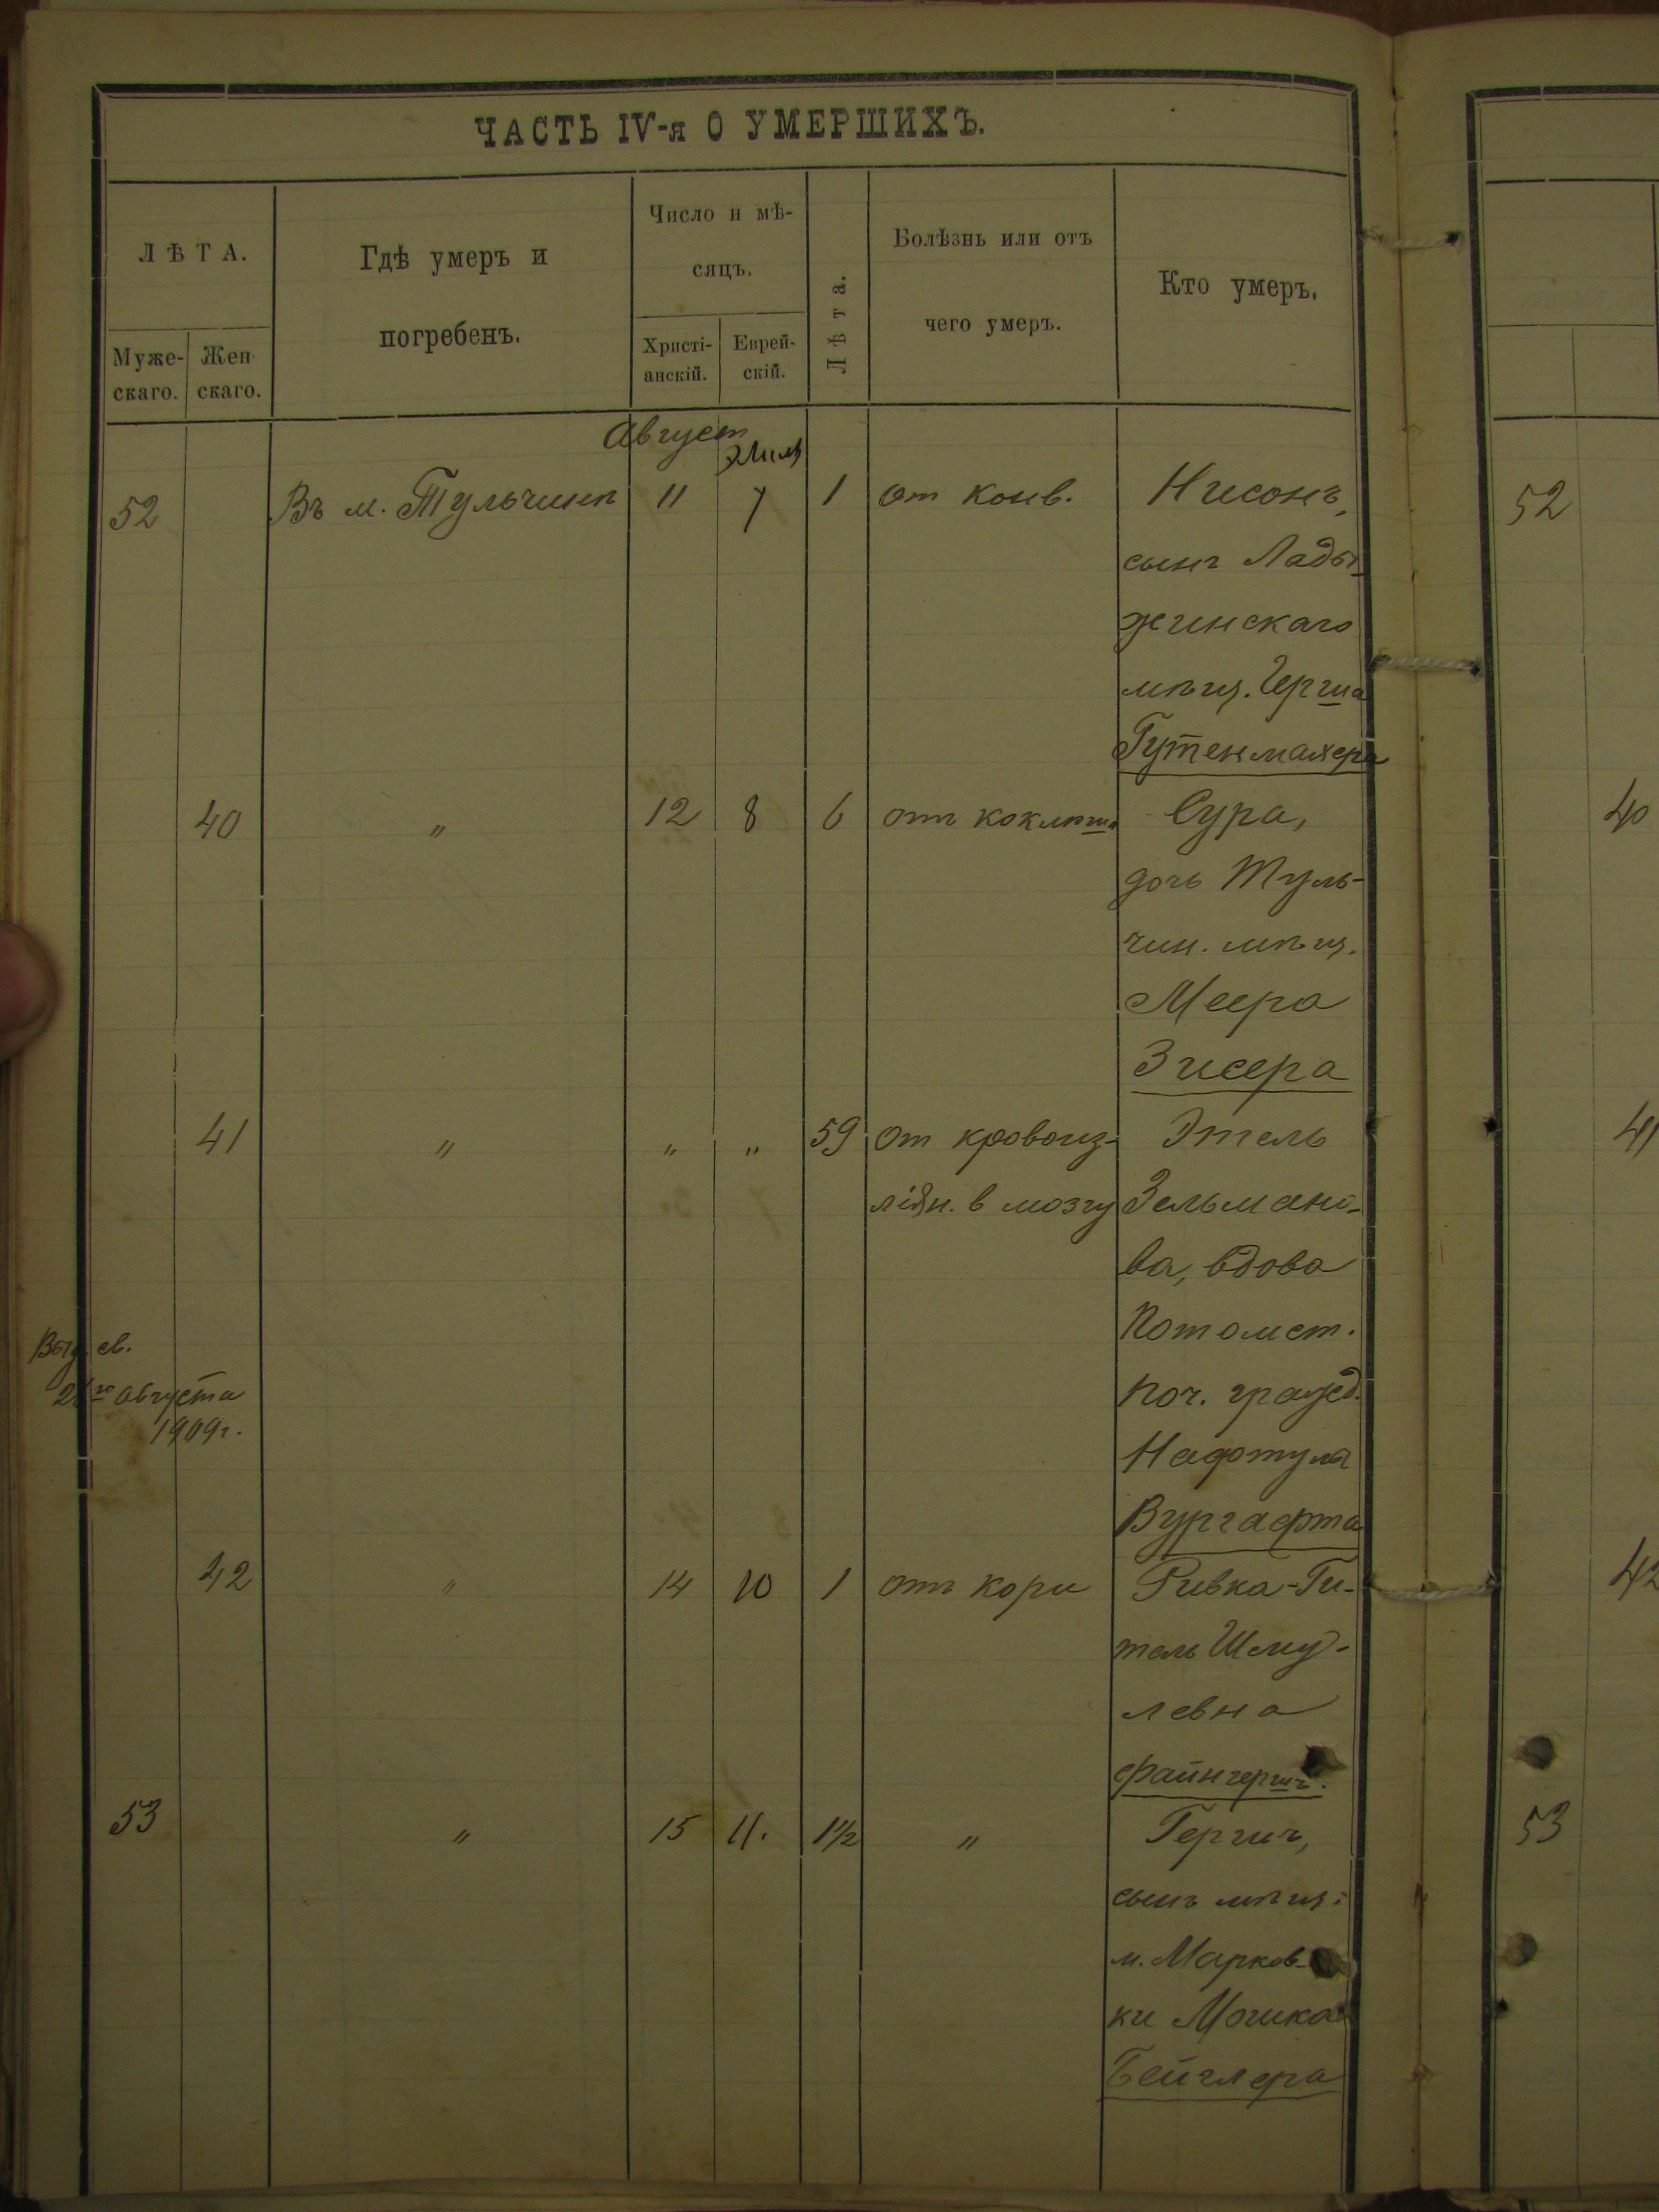 ЧАСТЬ IV-я О УМЕРШИХЪ.
ЛѢТА.
Муже-
скаго.
Жен
скаго.
Гдѣ умеръ и
погребенъ.
Число и мѣ-
сяцъ.
Христі-
анскій.
Еврей-
скій.
Лѣта.
Болѣзнь или отъ
чего умеръ.
Кто умеръ.
Август
Элилъ
52 Въ м. Тульчинѣ 11 7 1 от конв. Нисонъ, 52
сынъ Лады-
жинскаго
мѣщ. Герша
Гутенмахера
40 " 12 8 6 отъ коклюша Сура, 40
дочь Туль-
чин. мѣщ.
Меера
Зисера
41 " " " 59 от кровоиз- Этель 41
ліян. в мозгу Зельмано-
ва, вдова
Потомст.
Выд. св.
поч. гражд.
августа
1909 г.
Нафтула
Вургафта
42 " 14 10 1 отъ кори Ривка-Ги- 42
тель Шму-
левна
Файнгершъ.
53 " 15 11. 1½ " Гершъ, 53
сынъ мѣщ.
м. Марков-
ки Мошка
Бейглера